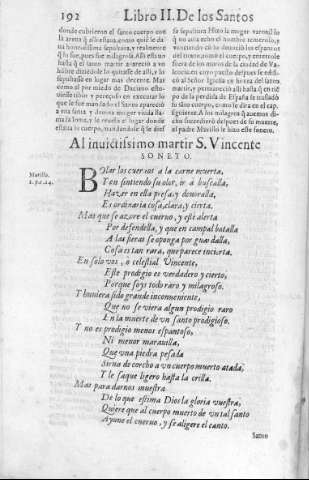 192 Libro II. De los Santos
donde cubrieron el santo cuerpo con
la arena q alli estaua, como quie le da
ua honradissima sepultura, y realmente
q lo fue, pues fue milagrosa. Alli estuuo
hasta q el santo martir aparecio a un
hõbre diziedole lo quitasse de alli, y lo
sepultasse en lugar mas decente. Mas
como al por miedo de Daciano estu-
uiesse tibio y perezoso en executar lo
que le fue mandado el Santo aparecio
a una santa y deuota muger viuda lla-
mada Ionia, y le reuelo el lugar donde
estaua su cuerpo, mandadole q le dies
se sepultura. Hizo la muger varonil lo
q no auia echo el hombre temeroso, y
fuera de los muros de la ciudad de Va-
lencia, en cuyo puesto despues se edifi
martir, y permanecio alli hasta q en tie
po de la perdida de España se traslado
tu sino cuerpo, como se dira en el cap.
siguiente. A los milagros q auemos di-
cho sucedieron despues de su muerte,
al padre Murillo le hizo este soneto.
Al inuictissimo martir S. Vincente
SONETO.
Murillo.
Bolar los cueruos a la carne muerta,
Y en sintiendo su olor, ir à buscalla,
Hazer en ella presa, y deuoralla,
Es ordinaria cosa, clara, y cierta.
Mas que se azore el cueruo, y este alerta
Por defendella, y que en campal batalla
A las fieras se oponga por guardalla,
Cosa es tan rara, que parece incierta.
En solo vos, ò celestial Vincente,
Este prodigio es verdadero y cierto,
Porque soys todo raro y milagroso.
Y huuiera sido grande inconueniente,
Que no se viera algun prodigio raro
En la muerte de vn santo prodigioso.
Y no es prodigio menos espantoso,
Ni menor marauilla,
Que vna piedra pesada
Sirua de corcho a vn cuerpo muerto atada,
Y le saque ligero hasta la orilla.
Mas para darnos muestra
De lo que estima Dios la gloria vuestra,
Quiere que al cuerpo muerto de vn tal santo
Ayune el cueruo, y se aligere el canto.
Santo